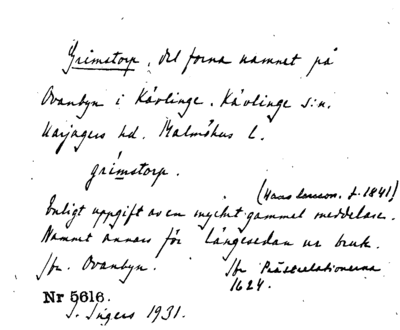 Grimstorp, det forna namnet på
Ovanbyn i Kävlinge. Kävlinge s:n.
Harjagers hd. Malmöhus l.
grímstorp.
(Hans Larsson. f. 1841)
Enligt uppgift av en mycket gammal meddelare.
Namnet annars för längesedan ur bruk.
Jfr. Ovanbyn. Jfr Prästrelationerna
1624.
Nr 5616.
I. Ingers 1931.